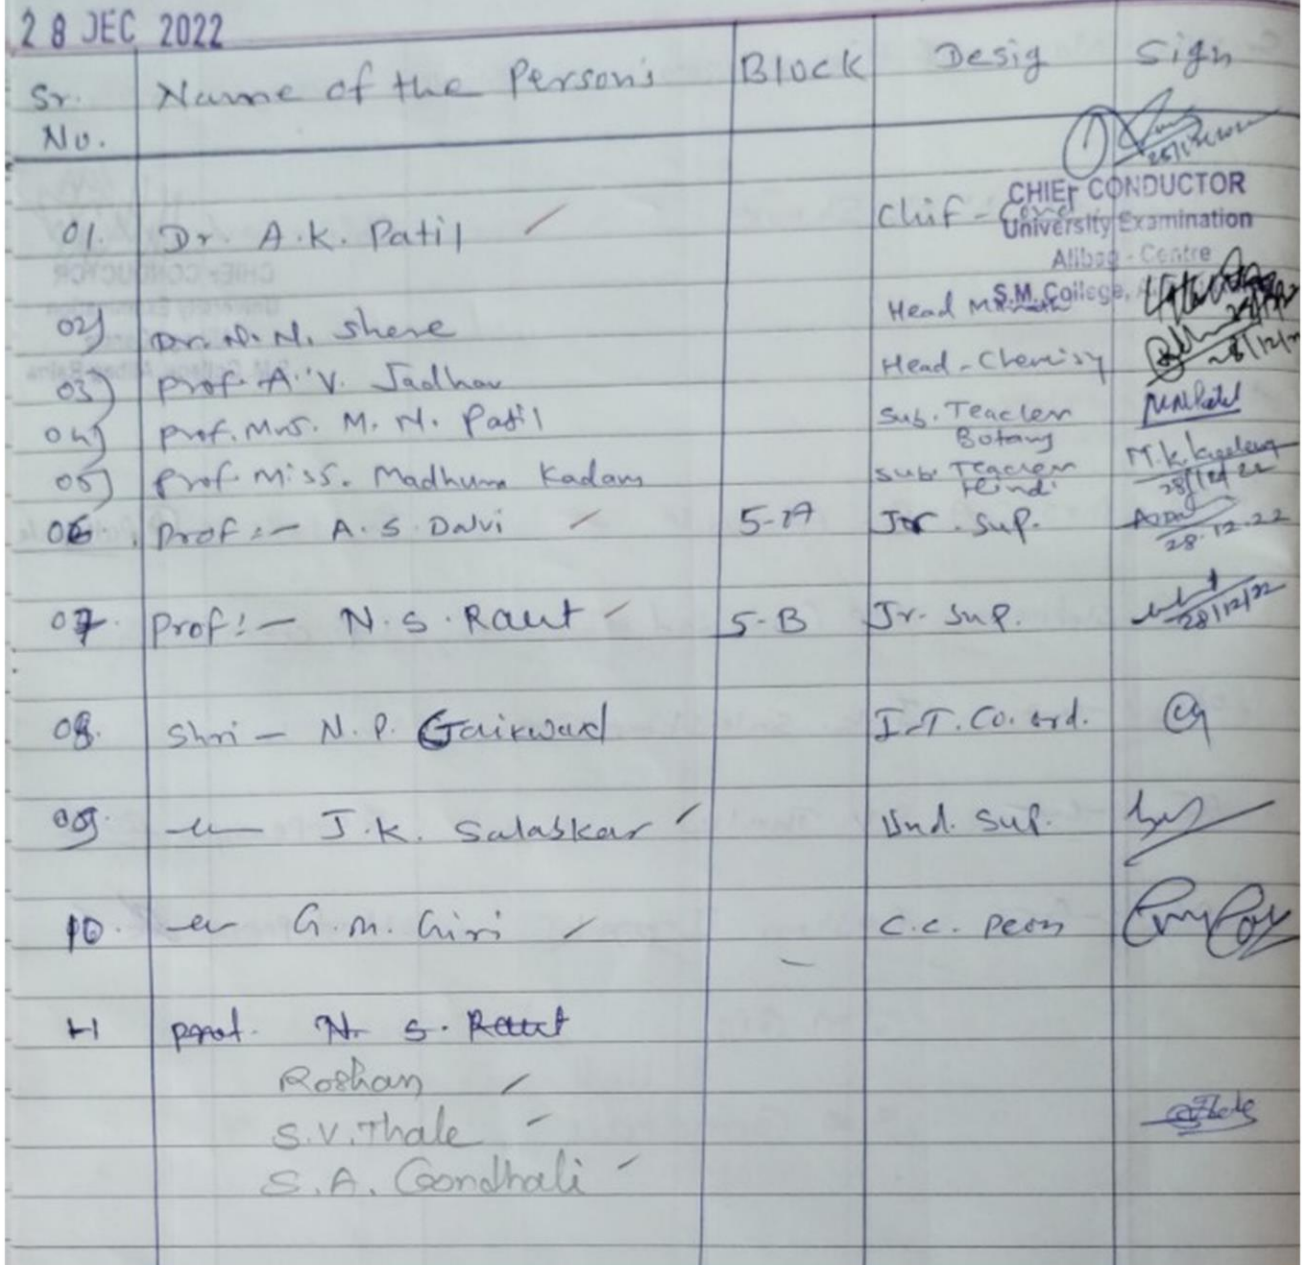 28 DEC 2022
Sr. No. Name of the Persons Block Desig Sign
28/12/2022
CHIEF CONDUCTOR
01. Dr. A.K. Patil Chif - Cond
University Examination
Alibag - Centre
S.M. College,
02) Dr. N. N. Shere Head
03) Prof. A. V. Jadhav Head - Chemisy 28/12/22
04) Prof. Mrs. M. N. Patil Sub. Teacher Botany MNPatil
05) Prof. Miss. Madhura Kadam Sub. Teacher Hindi 28/12/22
06 Prof :- A. S. Dalvi 5-A Jr. Sup. 28.12.22
07. Prof :- N. S. Raut 5-B Jr. Sup. 28/12/22
08. Shri - N. P. Gaikwad I.T. Co. ord.
09. -"- J. K. Salaskar Und. Sup.
10. -"- G. M. Giri C.C. Peon
11 Prof. N. S. Raut
Roshan
S.V. Thale
S. A. Gondhali